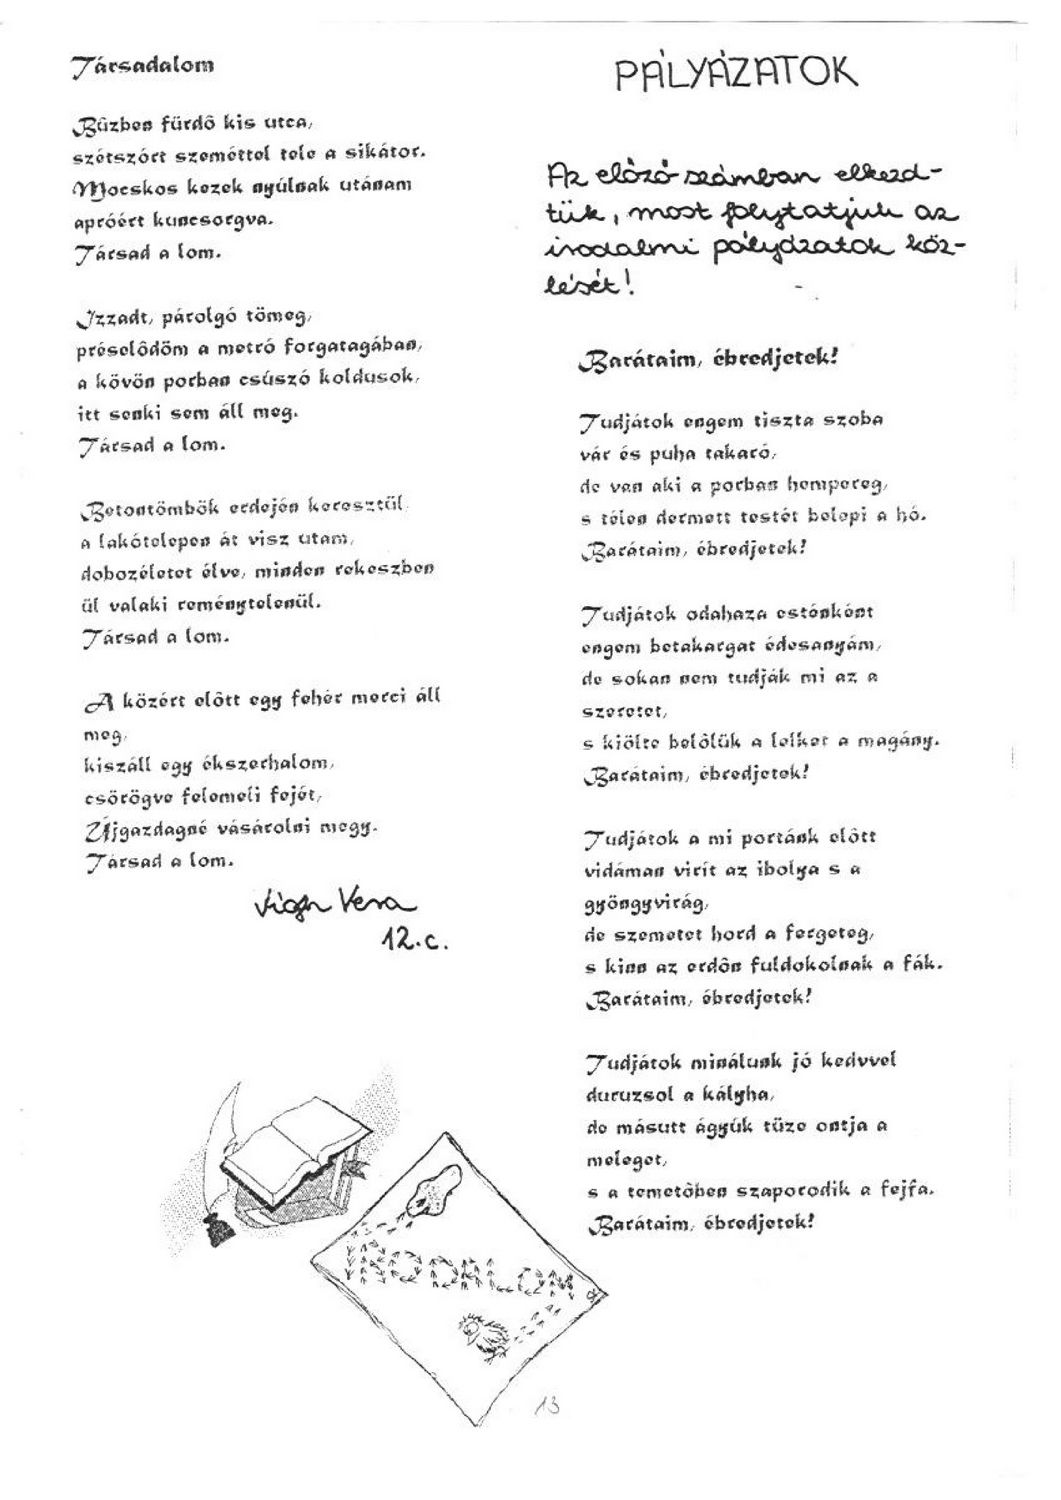 Társadalom
Bûzben fürdô kis utca,
szétszórt szeméttel tele a sikátor.
Mocskos kezek nyúlnak utánam
apróért kuncsorgva.
Társad a lom.
Izzadt, párolgó tömeg,
préselôdöm a metró forgatagában,
a kövön porban csúszó koldusok,
itt senki sem áll meg.
Társad a lom.
Betontömbök erdején keresztül
a lakótelepen át visz utam,
dobozéletet élve, minden rekeszben
ül valaki reménytelenül.
Társad a lom.
A közért elôtt egy fehér merci áll
meg,
kiszáll egy ékszerhalom,
csörögve felemeli fejét,
Újgazdagné vásárolni megy.
Társad a lom.
Vigh Vera
12.c.
PÁLYÁZATOK
Az elôzô számban elkezd-
tük, most folytatjuk az
irodalmi pályázatok köz-
lését!
Barátaim, ébredjetek!
Tudjátok engem tiszta szoba
vár és puha takaró,
de van aki a porban hempereg,
s télen dermett testét belepi a hó.
Barátaim, ébredjetek!
Tudjátok odahaza esténként
engem betakargat édesanyám,
de sokan nem tudják mi az a
szeretet,
s kiölte belôlük a lelket a magány.
Barátaim, ébredjetek!
Tudjátok a mi portánk elôtt
vidáman virít az ibolya s a
gyöngyvirág,
de szemetet hord a fergeteg,
s kinn az erdôn fuldokolnak a fák.
Barátaim, ébredjetek!
Tudjátok minálunk jó kedvvel
duruzsol a kályha,
de másutt ágyúk tüze ontja a
meleget,
s a temetôben szaporodik a fejfa.
Barátaim, ébredjetek!
IRODALOM
13